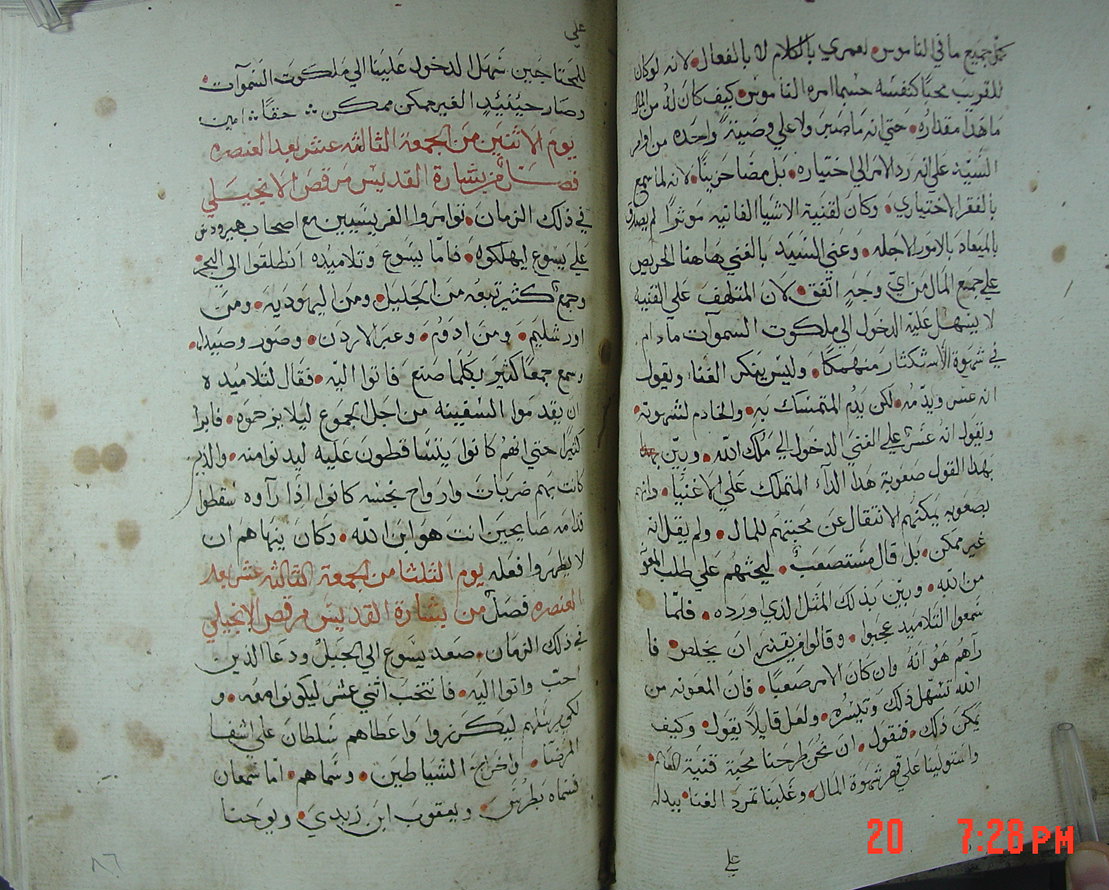 كل جميع ما في الناموس لعمري بالكلام لا بالفعال لانه لوكان
للقريب محبًا كنفسه حسبما امره الناموس كيف كان له من المال
ما هذا مقداره حتي انه ما صبر ولا علي وصية واحده من اوامر
السيد علي انه رد الامر الي اختياره بل مضا حزينًا لانه لما سمع
بالفقر الاختياري وكان لقنية الاشيا الفانيه موثرًا لم يصدق
بالميعاد بالامور الاجله وعني السيد بالغني هاهنا الحريص
علي جميع المال من اي وجهٍ اتفق لان المتلهف علي القنيه
لا يسهل عليه الدخول الي ملكوت السموات ما دام
في شهوة الاستكثار منهمكًا وليس ينكر الغنا ويقول
انه عسر ويذمه لكن يذم المتمسك به والخادم لشهوته
ويقول انه عسر علي الغني الدخول الي ملك الله وبيّن
بهذا القول صعوبة هذا الداء المتملك علي الاغنيا وانهم
بصعوبه يمكنهم الانتقال عن محبتهم للمال ولم يقل انه
غير ممكن بل قال مستصعب ليحثهم علي طلب المعونه
من الله وبيّن بذلك المثل الذي اورده فلمّا
سمعوا التلاميذ عجبوا وقالوا من يقدر ان يخلص فا
رآهم هو انه وان كان الامر صعبًا فان المعونه من
الله تسهّل ذلك وتيسّره ولعل قايلاً يقول وكيف
يمكن ذلك فنقول ان نحن طرحنا محبة قنية
واستولينا علي قهر شهوة المال وغلبنا تمرد الغنا ببدله
علي
علي
للمحتاجين سهل الدخول علينا الي ملكوت السموات
وصار حينيذٍ الغير ممكن ممكن حقًا امين
يوم الاثنين من الجمعة الثالثه عشر بعد العنصره
فصل من بشارة القديس مرقص الانجيلي
في ذلك الزمان توامروا الفريسيين مع اصحاب هيرودس
علي يسوع ليهلكوه فامّا يسوع وتلاميذه انطلقوا الي البحر
وجمع كثير تبعه من الجليل ومن اليهوديه ومن
اورشليم ومن ادوم وعبر الاردن وصور وصيدا
وسمع جمعًا كثير بكلما صنع فاتوا اليه فقال لتلاميذه
ان يقدموا السفينه من اجل الجموع ليلا يزحموه فابرا
كثيرًا حتي انهم كانوا يتساقطون عليه ليدنوا منه والذين
كانت بهم ضربات وارواح نجسه كانوا اذا رآوه سقطوا
قدامه صايحين انت هو ابن الله وكان ينهاهم ان
لا يظهروا فعله يوم الثلثا من الجمعة الثالثه عشر بعد
العنصره فصل من بشارة القديس مرقص الانجيلي
في ذلك الزمان صعد يسوع الي الجبل ودعا الذين
احب واتوا اليه فانتخب اثني عشر ليكونوا معه و
لكي يرسلهم ليكرزوا واعطاهم سلطان علي اشفا
المرضا واخراج الشياطين وسماهم امّا شمعان
فسماه بطرس ويعقوب ابن زبدي ويوحنا
٨٦
20 7:28 PM